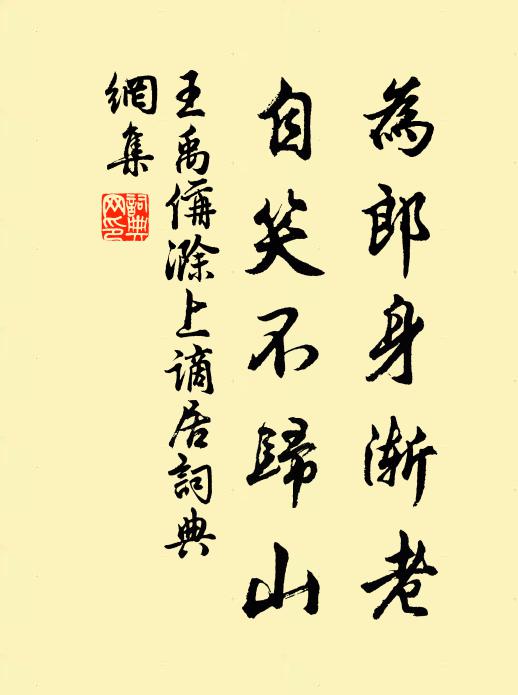 為郎身漸老
自笑不歸山
王禹偁滁上謫居詞典
網集
詞典
网印